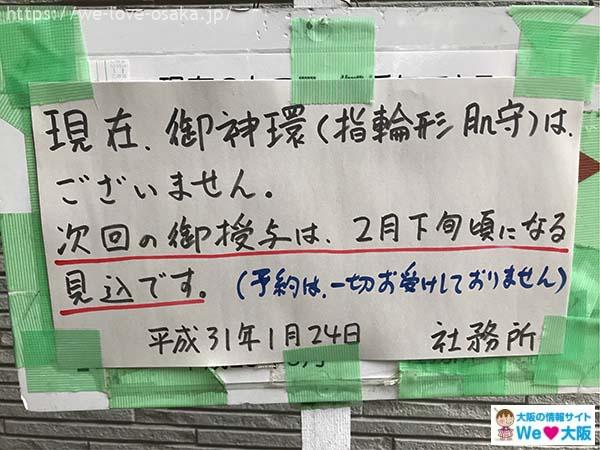 https://we-love-osaka.jp/
現在、御神環(指輪形 肌守)は、
ございません。
次回の御授与は、2月下旬頃になる
見込です。(予約は、一切お受けしておりません)
平成31年1月24日 社務所
大阪の情報サイト
We♥大阪